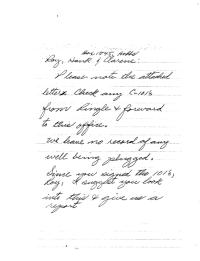 Box 1045, Hobbs
Roy, Hank & Clarence:
Please note the attached
letters Check any C-101b
from Ringle & forward
to this office.
We have no record of any
well being plugged.
Since you signed the 101b,
Roy, I suggest you look
into this & give us a
report